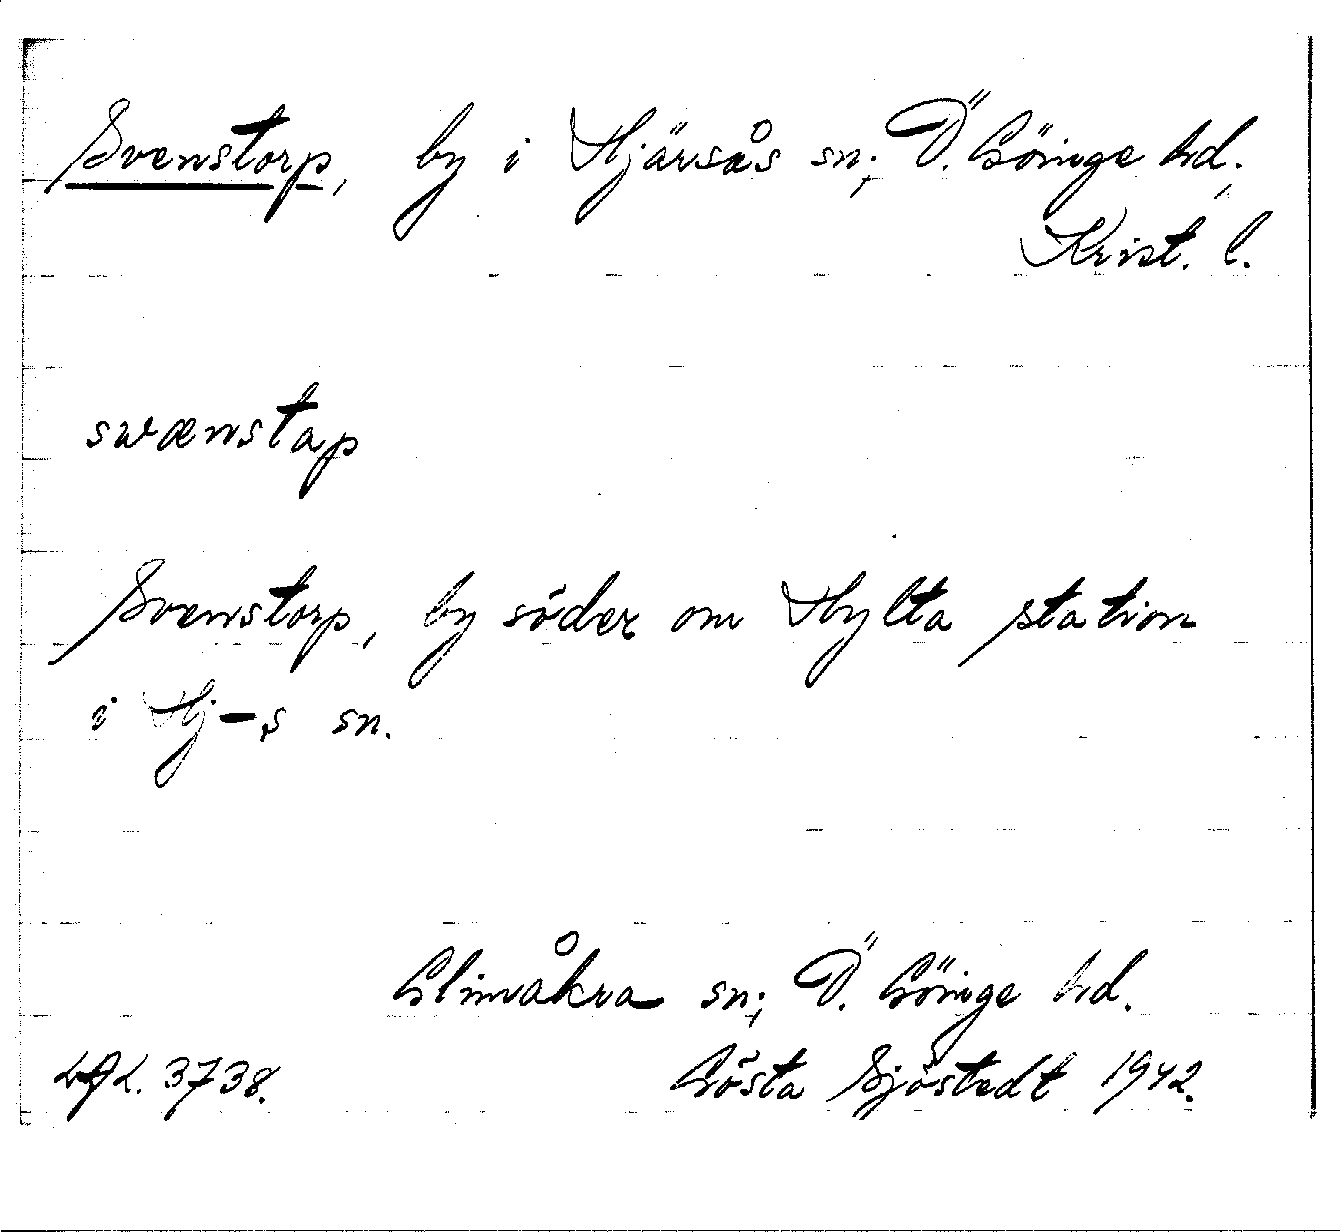 Svenstorp, by i Hjärsås sn; Ö. Göinge hd,
Krist. l.
swænstap
Svenstorp, by söder om Hylta station
i Hj–s sn.
Glimåkra sn; Ö. Göinge hd.
LAL. 3738. Gösta Sjöstedt 1942.